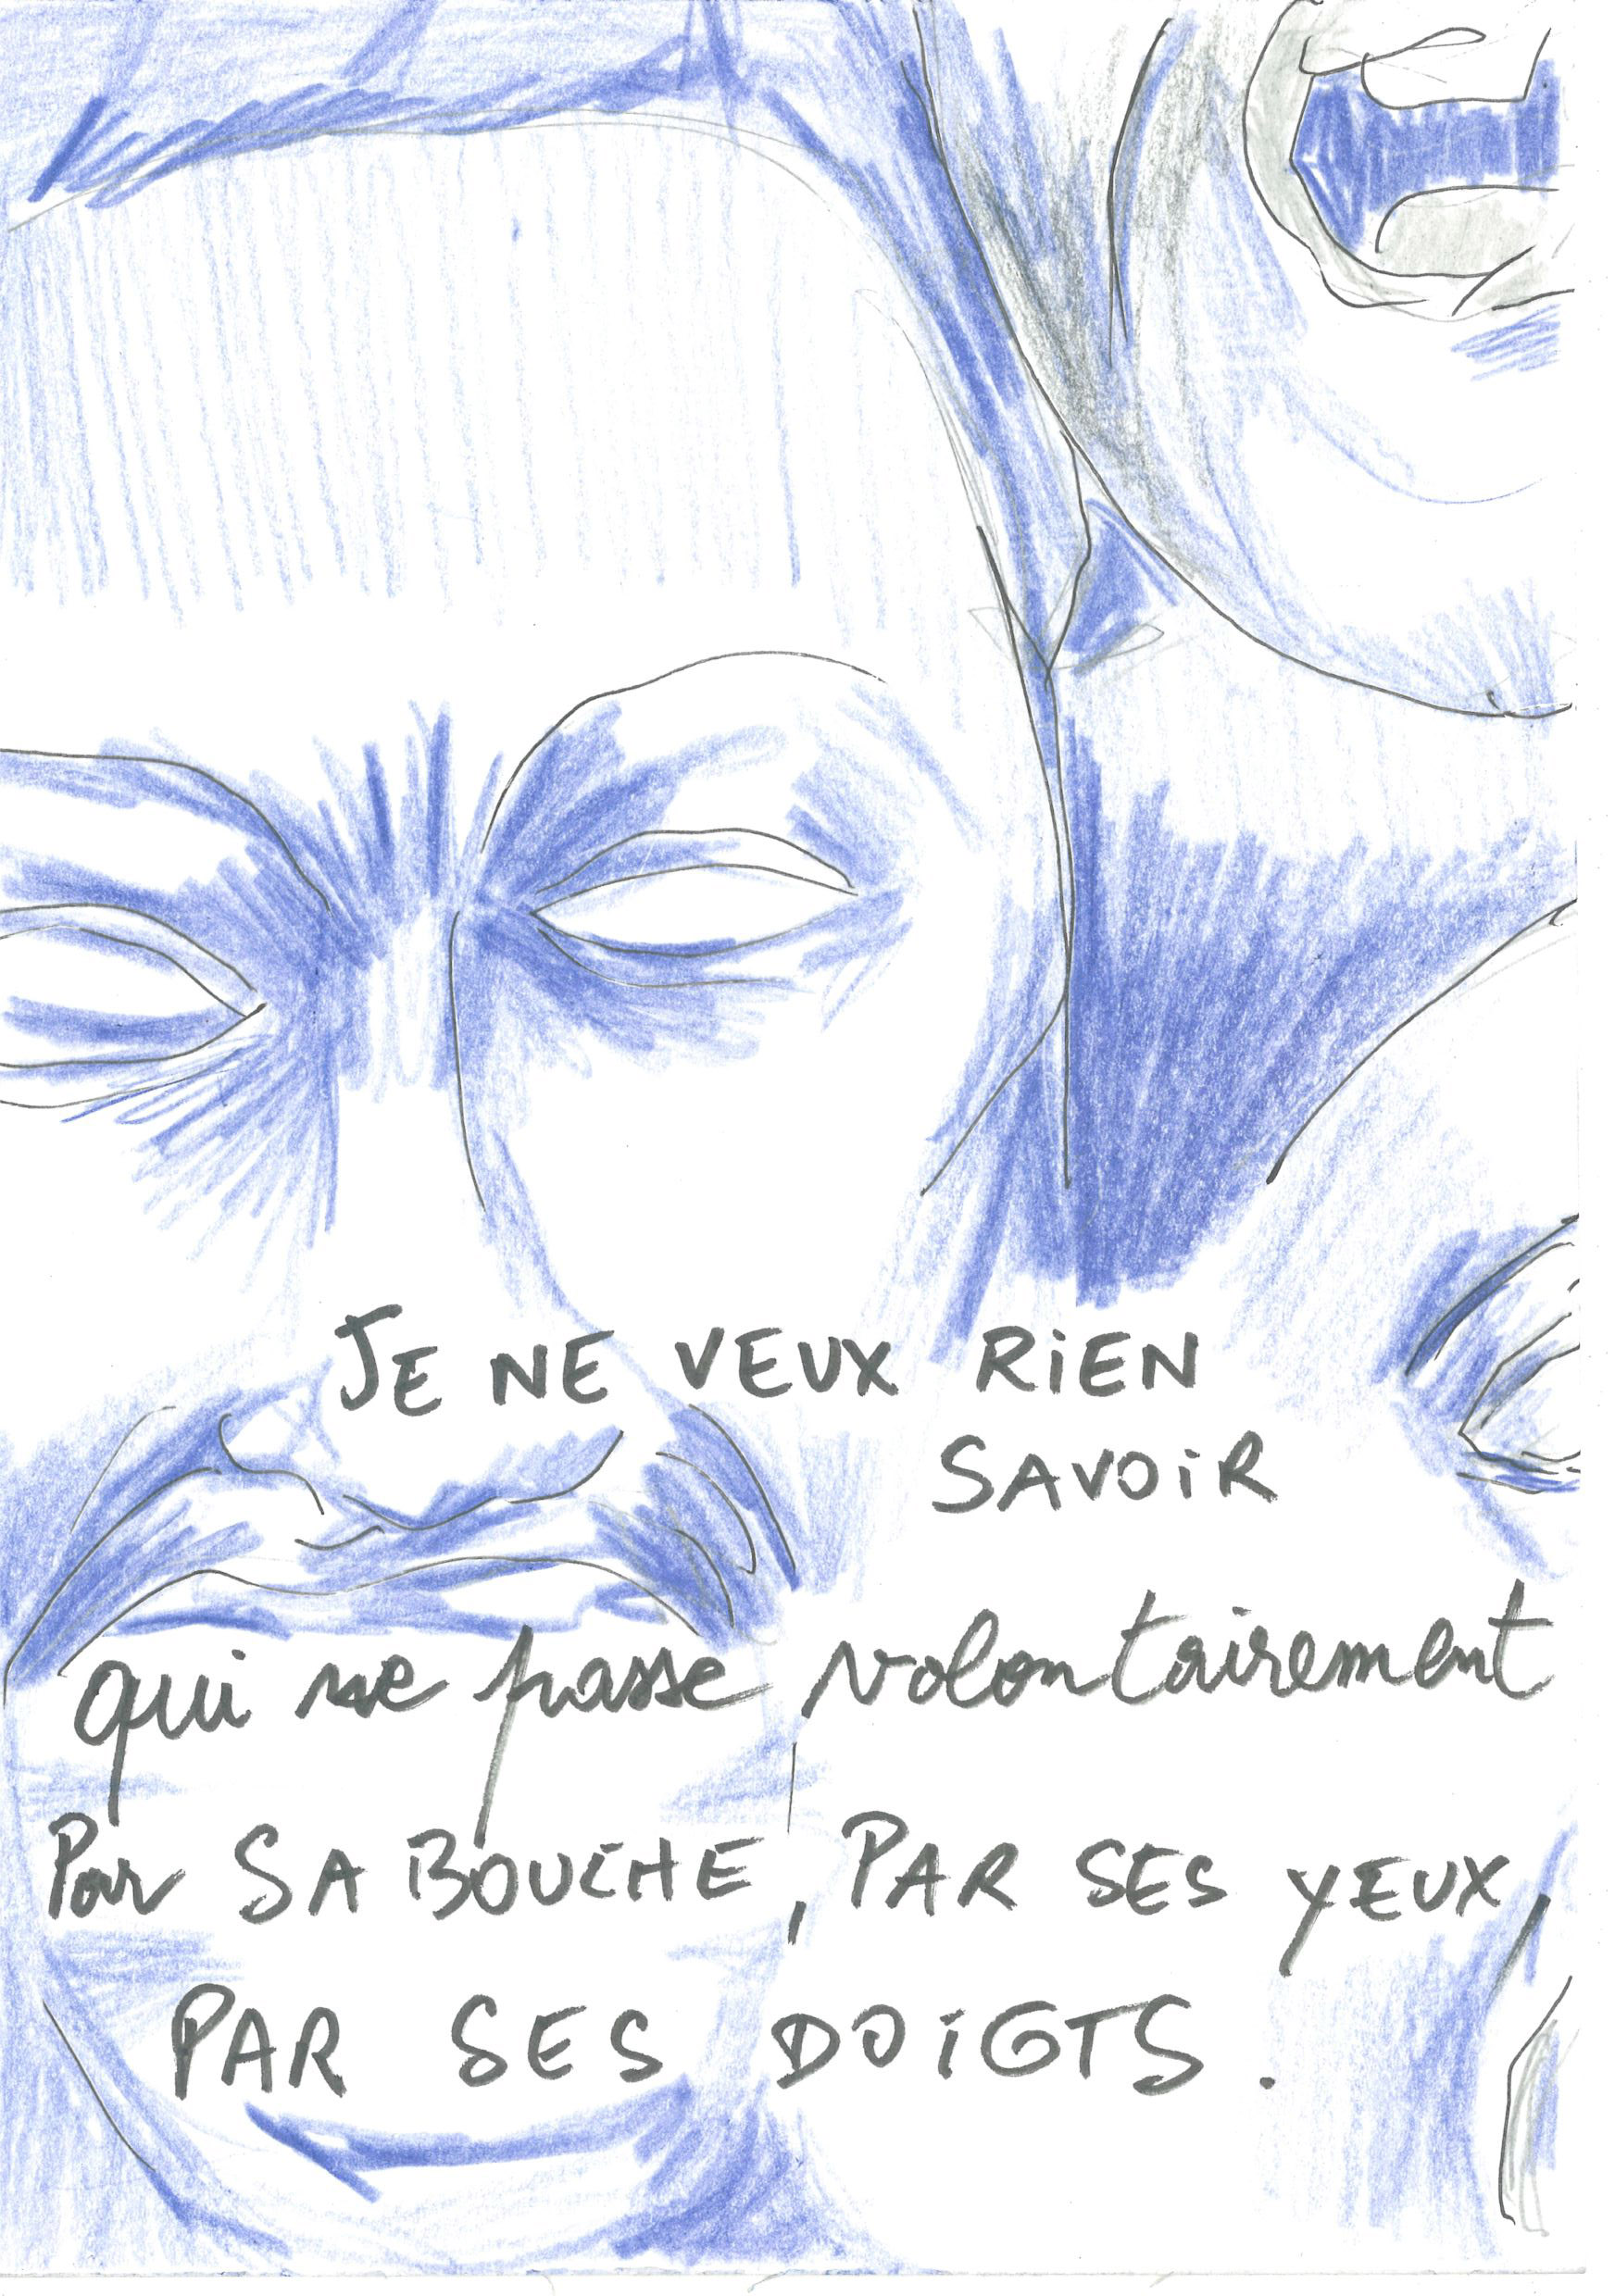 JE NE VEUX RIEN
SAVOIR
qui se passe volontairement
Par SA BOUCHE, PAR SES YEUX,
PAR SES DOIGTS.